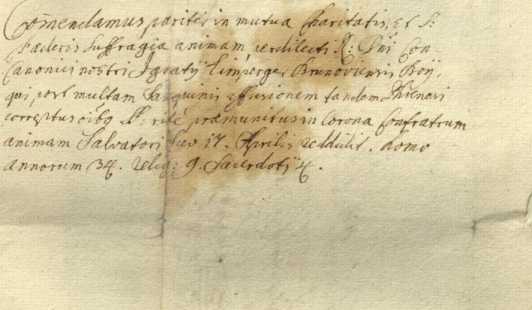 Com̄endamus pariter in mutua Charitatis, et S:
Fæderis Suffragia animam, perdilecti R: Dn̄i Con-
Canonici nostri Ignatij Limperger Brunovi Boij,
qui, post multam Sanguinis effusionem tandem Phrenesi
correptus oībq S: ritè præmunitus in Corona Confratrum
animam Salvatori suo 17. Aprilis reddidit. Anno
annorum 34. Relig: 9. Sacerdotij 4.